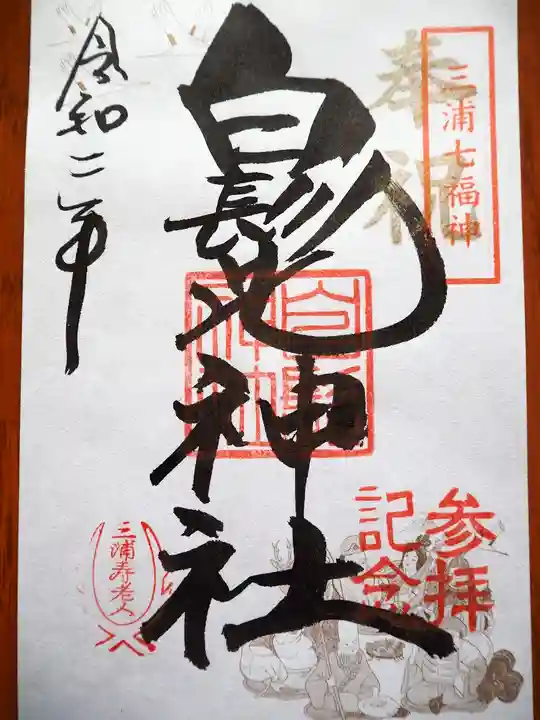 奉祝
三浦七福神
白髭神社
白髭神社
参拝
記念
令和二年
三浦寿老人